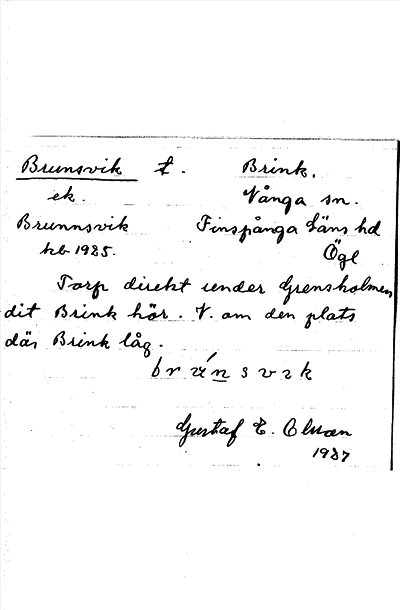 Brunsvik t. Brink,
ek. Vånga sn.
Brunnsvik Finspånga Läns hd
kb 1925. Ögl
Torp direkt under Grensholmen
dit Brink hör. V. om den plats
där Brink låg.
Gustaf E. Olsson
1927